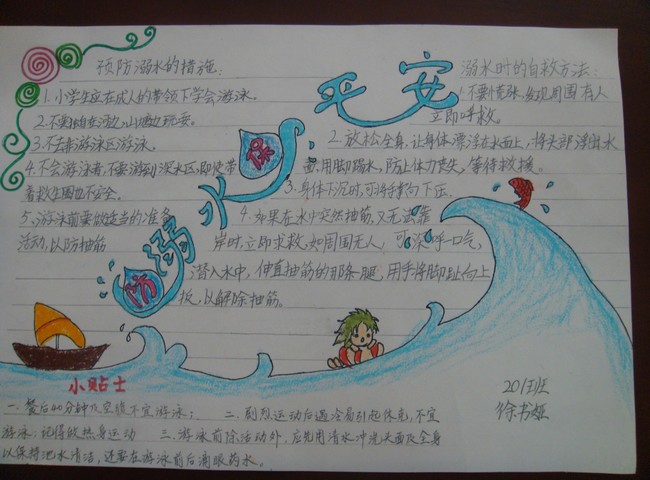 预防溺水的措施:
1.小学生应在成人的带领下学会游泳。
2.不要独自在河边、山塘边玩耍。
3.不去非游泳区游泳。
4.不会游泳者,不要游到深水区,即使带
着救生圈也不安全。
5.游泳前要做适当的准备
活动,以防抽筋
防溺水 保平安
溺水时的自救方法:
1.不要慌张,发现周围有人
立即呼救。
2.放松全身,让身体漂浮在水面上,将头部浮出水
面,用脚踢水,防止体力丧失,等待救援。
3.身体下沉时,可将手掌向下压。
4.如果在水中突然抽筋,又无法靠
岸时,立即求救,如周围无人,可深呼一口气,
潜入水中,伸直抽筋的那条腿,用手将脚趾向上
扳,以解除抽筋。
小贴士
一、餐后40分钟及空腹不宜游泳;二、剧烈运动后遇冷易引起休克,不宜
游泳;记得做热身运动 三、游泳前除活动外,应先用清水冲洗头面及全身
以保持池水清洁,还要在游泳前后滴眼药水。
201班
徐书娅